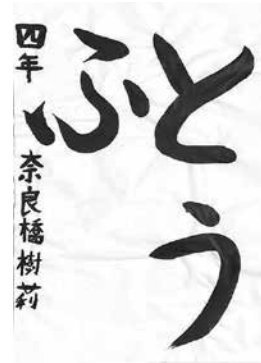 とう
ふ
四年 奈良橋樹莉